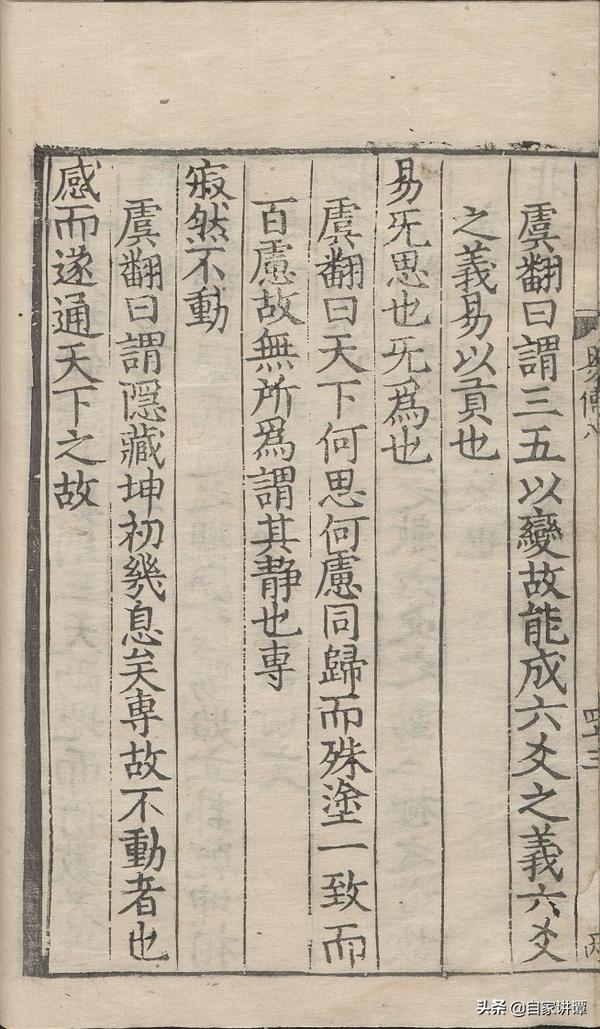 虞翻曰謂三五以變故能成六爻之義六爻
之義易以貢也
易旡思也旡爲也
虞翻曰天下何思何慮同歸而殊塗一致而
百慮故無所爲謂其静也專
寂然不動
虞翻曰謂隱藏坤初幾息矣專故不動者也
感而遂通天下之故
易傳八
四十三
头条 @自家讲谭